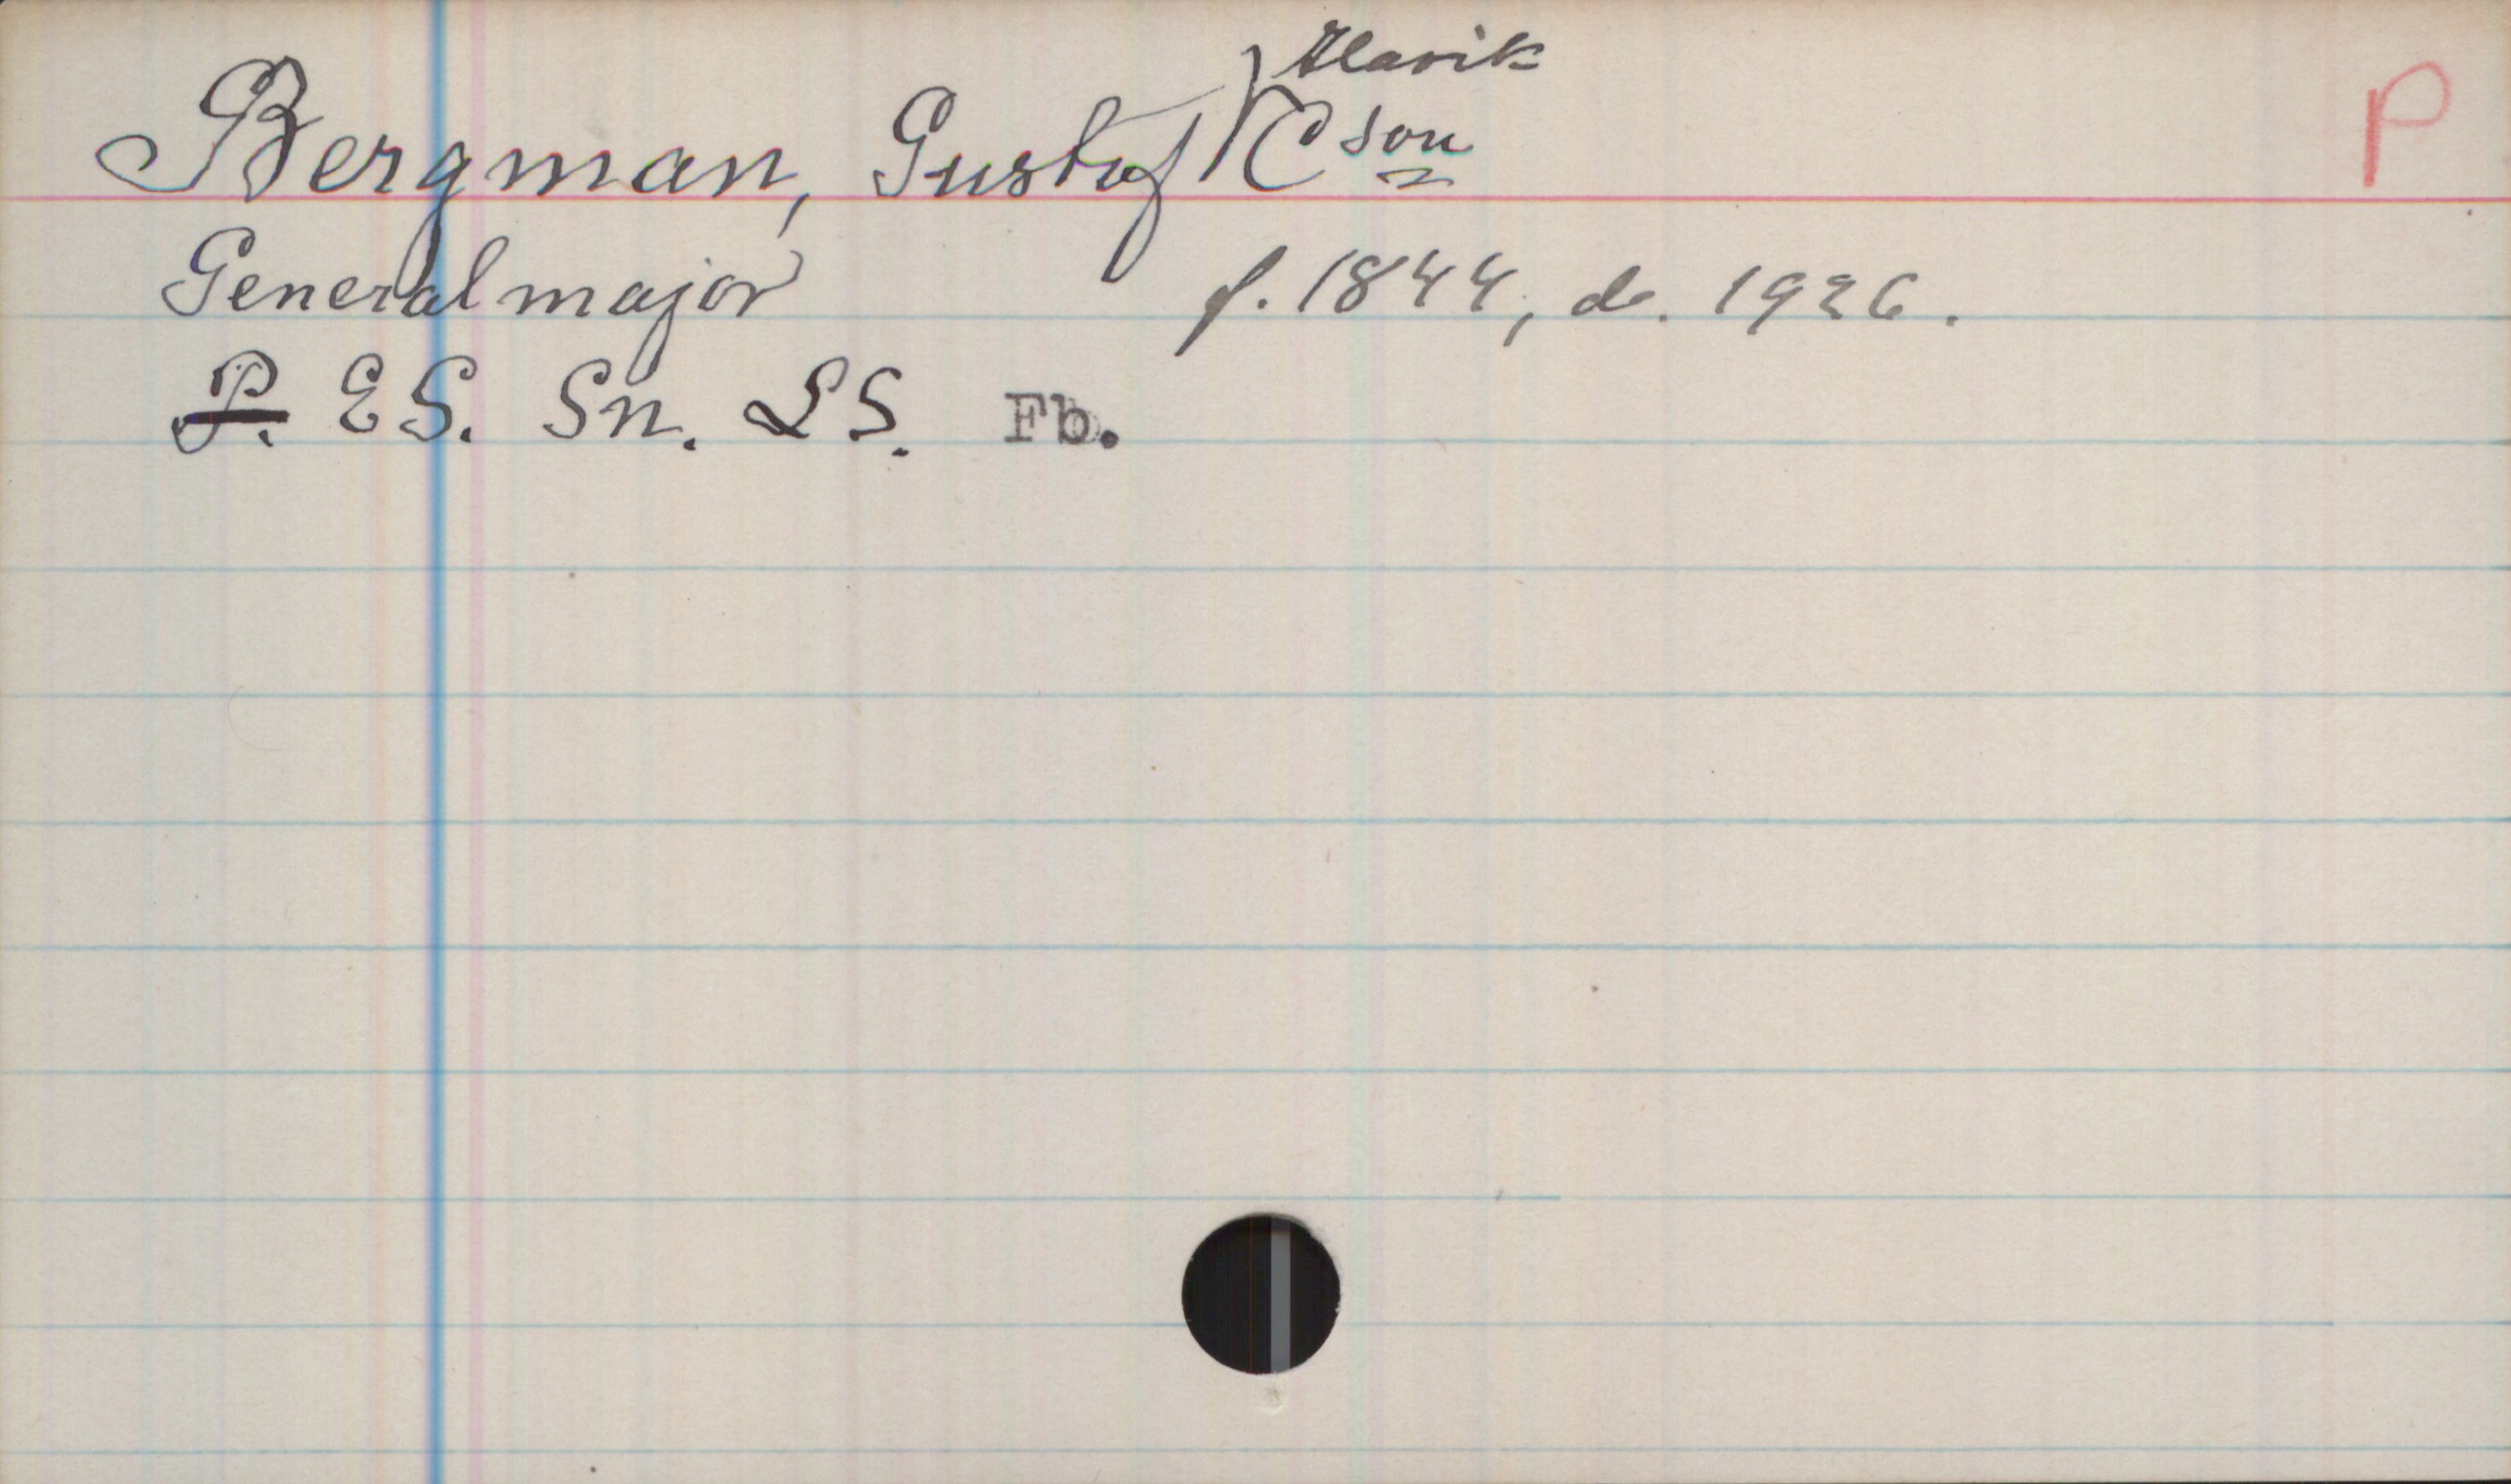 Bergman, Gustaf Alarik Cson P
Generalmajor f. 1844, d. 1926.
P. ES. Sn. LS. Fb.